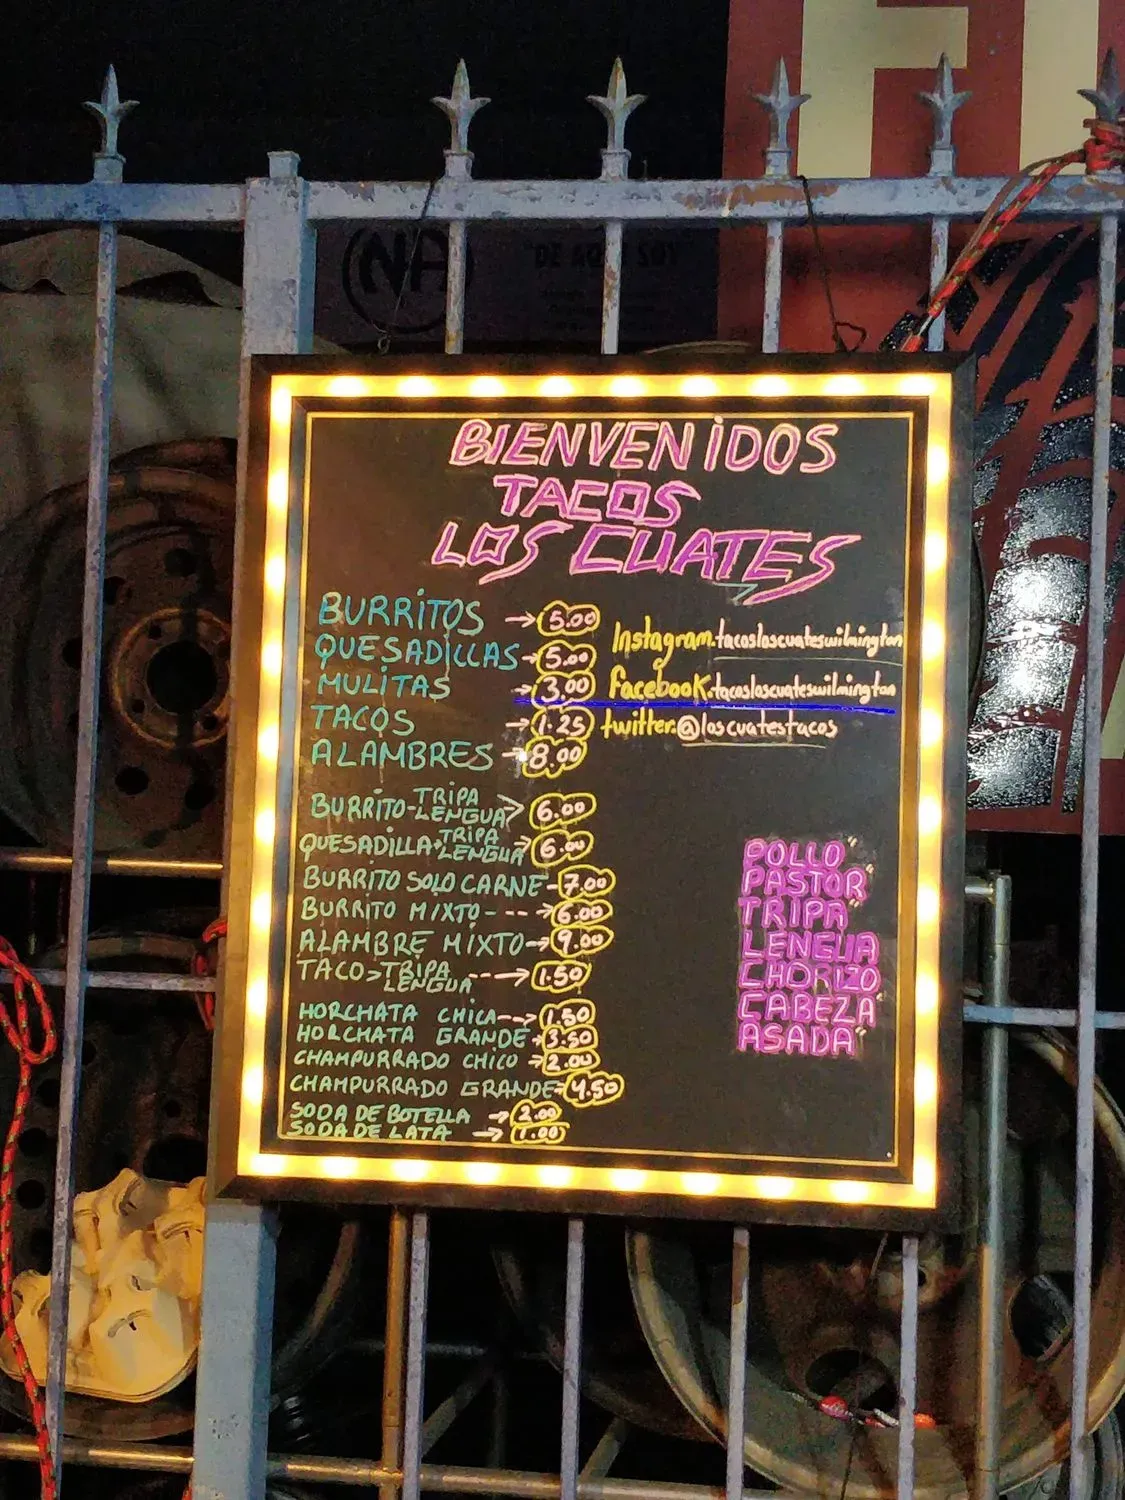 FI
NA
"DE AQUI SOY"
BIENVENIDOS
TACOS
LOS CUATES
BURRITOS → 5.00
QUESADILLAS → 5.00
MULITAS → 3.00
TACOS → 1.25
ALAMBRES → 8.00
Instagram.tacosloscuateswilmington
facebook.tacosloscuateswilmington
twitter.@loscuatestacos
BURRITO-TRIPA LENGUA > 6.00
QUESADILLA-TRIPA LENGUA → 6.00
BURRITO SOLO CARNE - 7.00
BURRITO MIXTO - - - → 6.00
ALAMBRE MIXTO → 9.00
TACO > TRIPA LENGUA - - - → 1.50
HORCHATA CHICA - - → 1.50
HORCHATA GRANDE → 3.50
CHAMPURRADO CHICO → 2.00
CHAMPURRADO GRANDE → 4.50
SODA DE BOTELLA → 2.00
SODA DE LATA → 1.00
POLLO"
PASTOR"
TRIPA"
LENGUA
CHORIZO
CABEZA"
ASADA"